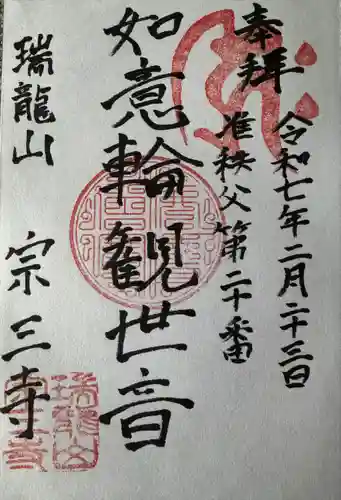 奉拝
令和七年二月二十三日
准秩父第二十番
如意輪観世音
瑞龍山
宗三寺
瑞龍山
宗三寺